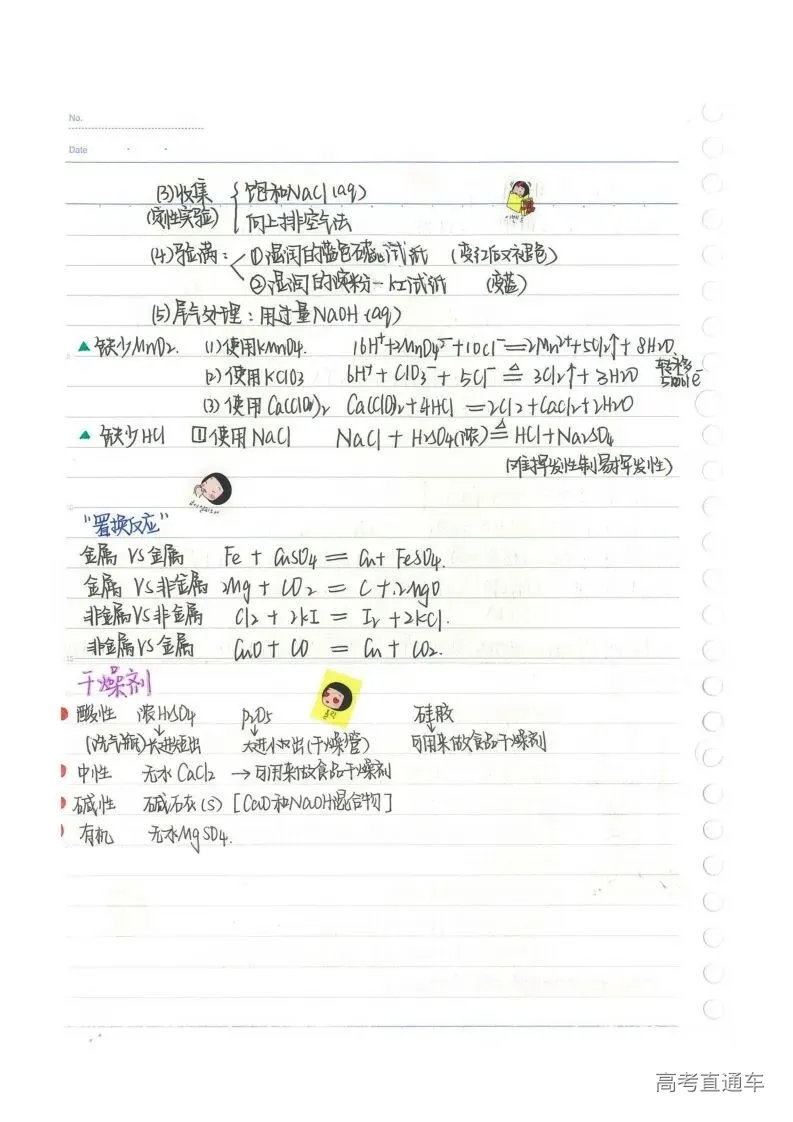 No.
Date
(3)收集 { 饱和NaCl(aq)
(定性实验) 向上排空气法
(4)验满: ①湿润的蓝色石蕊试纸 (变红后又褪色)
②湿润的淀粉-KI试纸 (变蓝)
(5)尾气处理:用过量NaOH(aq)
▲ 缺少MnO2. (1)使用KMnO4. 16H⁺+2MnO4⁻+10Cl⁻==2Mn²⁺+5Cl2↑+8H2O.
(2)使用KClO3 6H⁺+ClO3⁻+5Cl⁻ ≜ 3Cl2↑+3H2O 转移5mole⁻
(3)使用Ca(ClO)2 Ca(ClO)2+4HCl =2Cl2+CaCl2+2H2O
▲ 缺少HCl ①使用NaCl NaCl+H2SO4(浓)≜HCl+Na2SO4
(难挥发性制易挥发性)
"置换反应"
金属 VS金属 Fe + CuSO4 == Cu+ FeSO4.
金属 VS非金属 2Mg + CO2 = C+2MgO
非金属VS非金属 Cl2 + 2KI = I2 +2KCl.
非金属VS金属 CuO+CO = Cu+CO2.
干燥剂
酸性 浓H2SO4 P2O5 硅胶
(洗气瓶)长进短出 大进小出(干燥管) 可用来做食品干燥剂
中性 无水CaCl2 →可用来做食品干燥剂
碱性 碱石灰(s) [CaO和NaOH混合物]
有机 无水MgSO4.
高考直通车